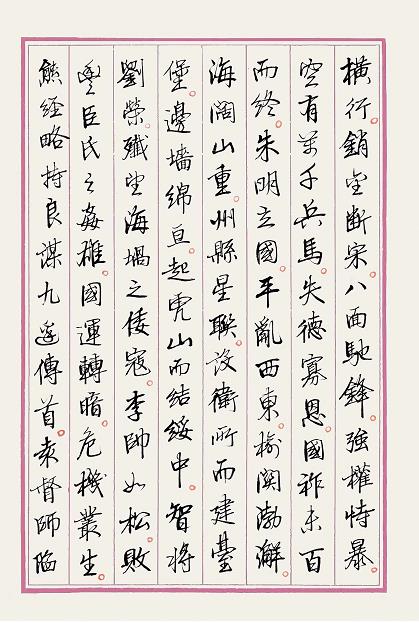 橫行銷金斷宋八面馳鋒強權恃暴
空有萬千兵馬失德寡恩國祚未百
而終朱明立國平亂西東榆關渤澥
海闊山重州縣星聯設衛所而建臺
堡邊墻綿亘起虎山而結綏中智將
劉榮殲望海堝之倭寇李帥如松敗
豐臣氏之姦雄國運轉暗危機叢生
熊經略持良謀九邊傳首袁督師臨